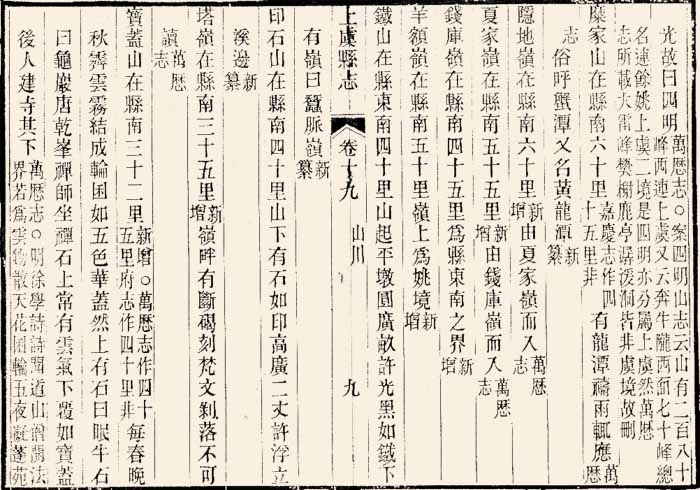 光故曰四明萬厯志○案四明山志云山有二百八十
峰西連上虞又云奔牛隴西面七十峰總
名連餘姚上虞二境是四明亦分屬上虞然萬厯
志所載大雷峰樊榭鹿亭潺湲洞皆非虞境故刪
糜家山在縣南六十里嘉慶志作四
十五里非有龍潭禱雨輒應萬
厯
志俗呼蟹潭又名黃龍潭新
纂
隱地嶺在縣南六十里新
增由夏家嶺而入萬厯
志
夏家嶺在縣南五十五里新
增由錢庫嶺而入萬厯
志
錢庫嶺在縣南四十五里爲縣東南之界新
增
羊額嶺在縣南五十里嶺上爲姚境新
增
鐵山在縣東南四十里山起平墩圓廣畝許光黑如鐵下
上虞縣志 卷十九 山川 九
有嶺曰蠶脈嶺新
纂
印石山在縣南四十里山下有石如印高廣二丈許浮立
溪邊新
纂
塔嶺在縣南三十五里新
增嶺畔有斷碣刻梵文剝落不可
讀萬厯
志
寶蓋山在縣南三十二里新增○萬厯志作四十
五里府志作四十里非每春晚
秋霽雲霧結成輪囷如五色華蓋然上有石曰眠牛石
曰龜巖唐乾峯禪師坐禪石上常有雲氣下覆如寶蓋
後人建寺其下萬厯志○明徐學詩詩聞道山僧開法
界若爲雲物散天花囷輪五夜凝蓬苑